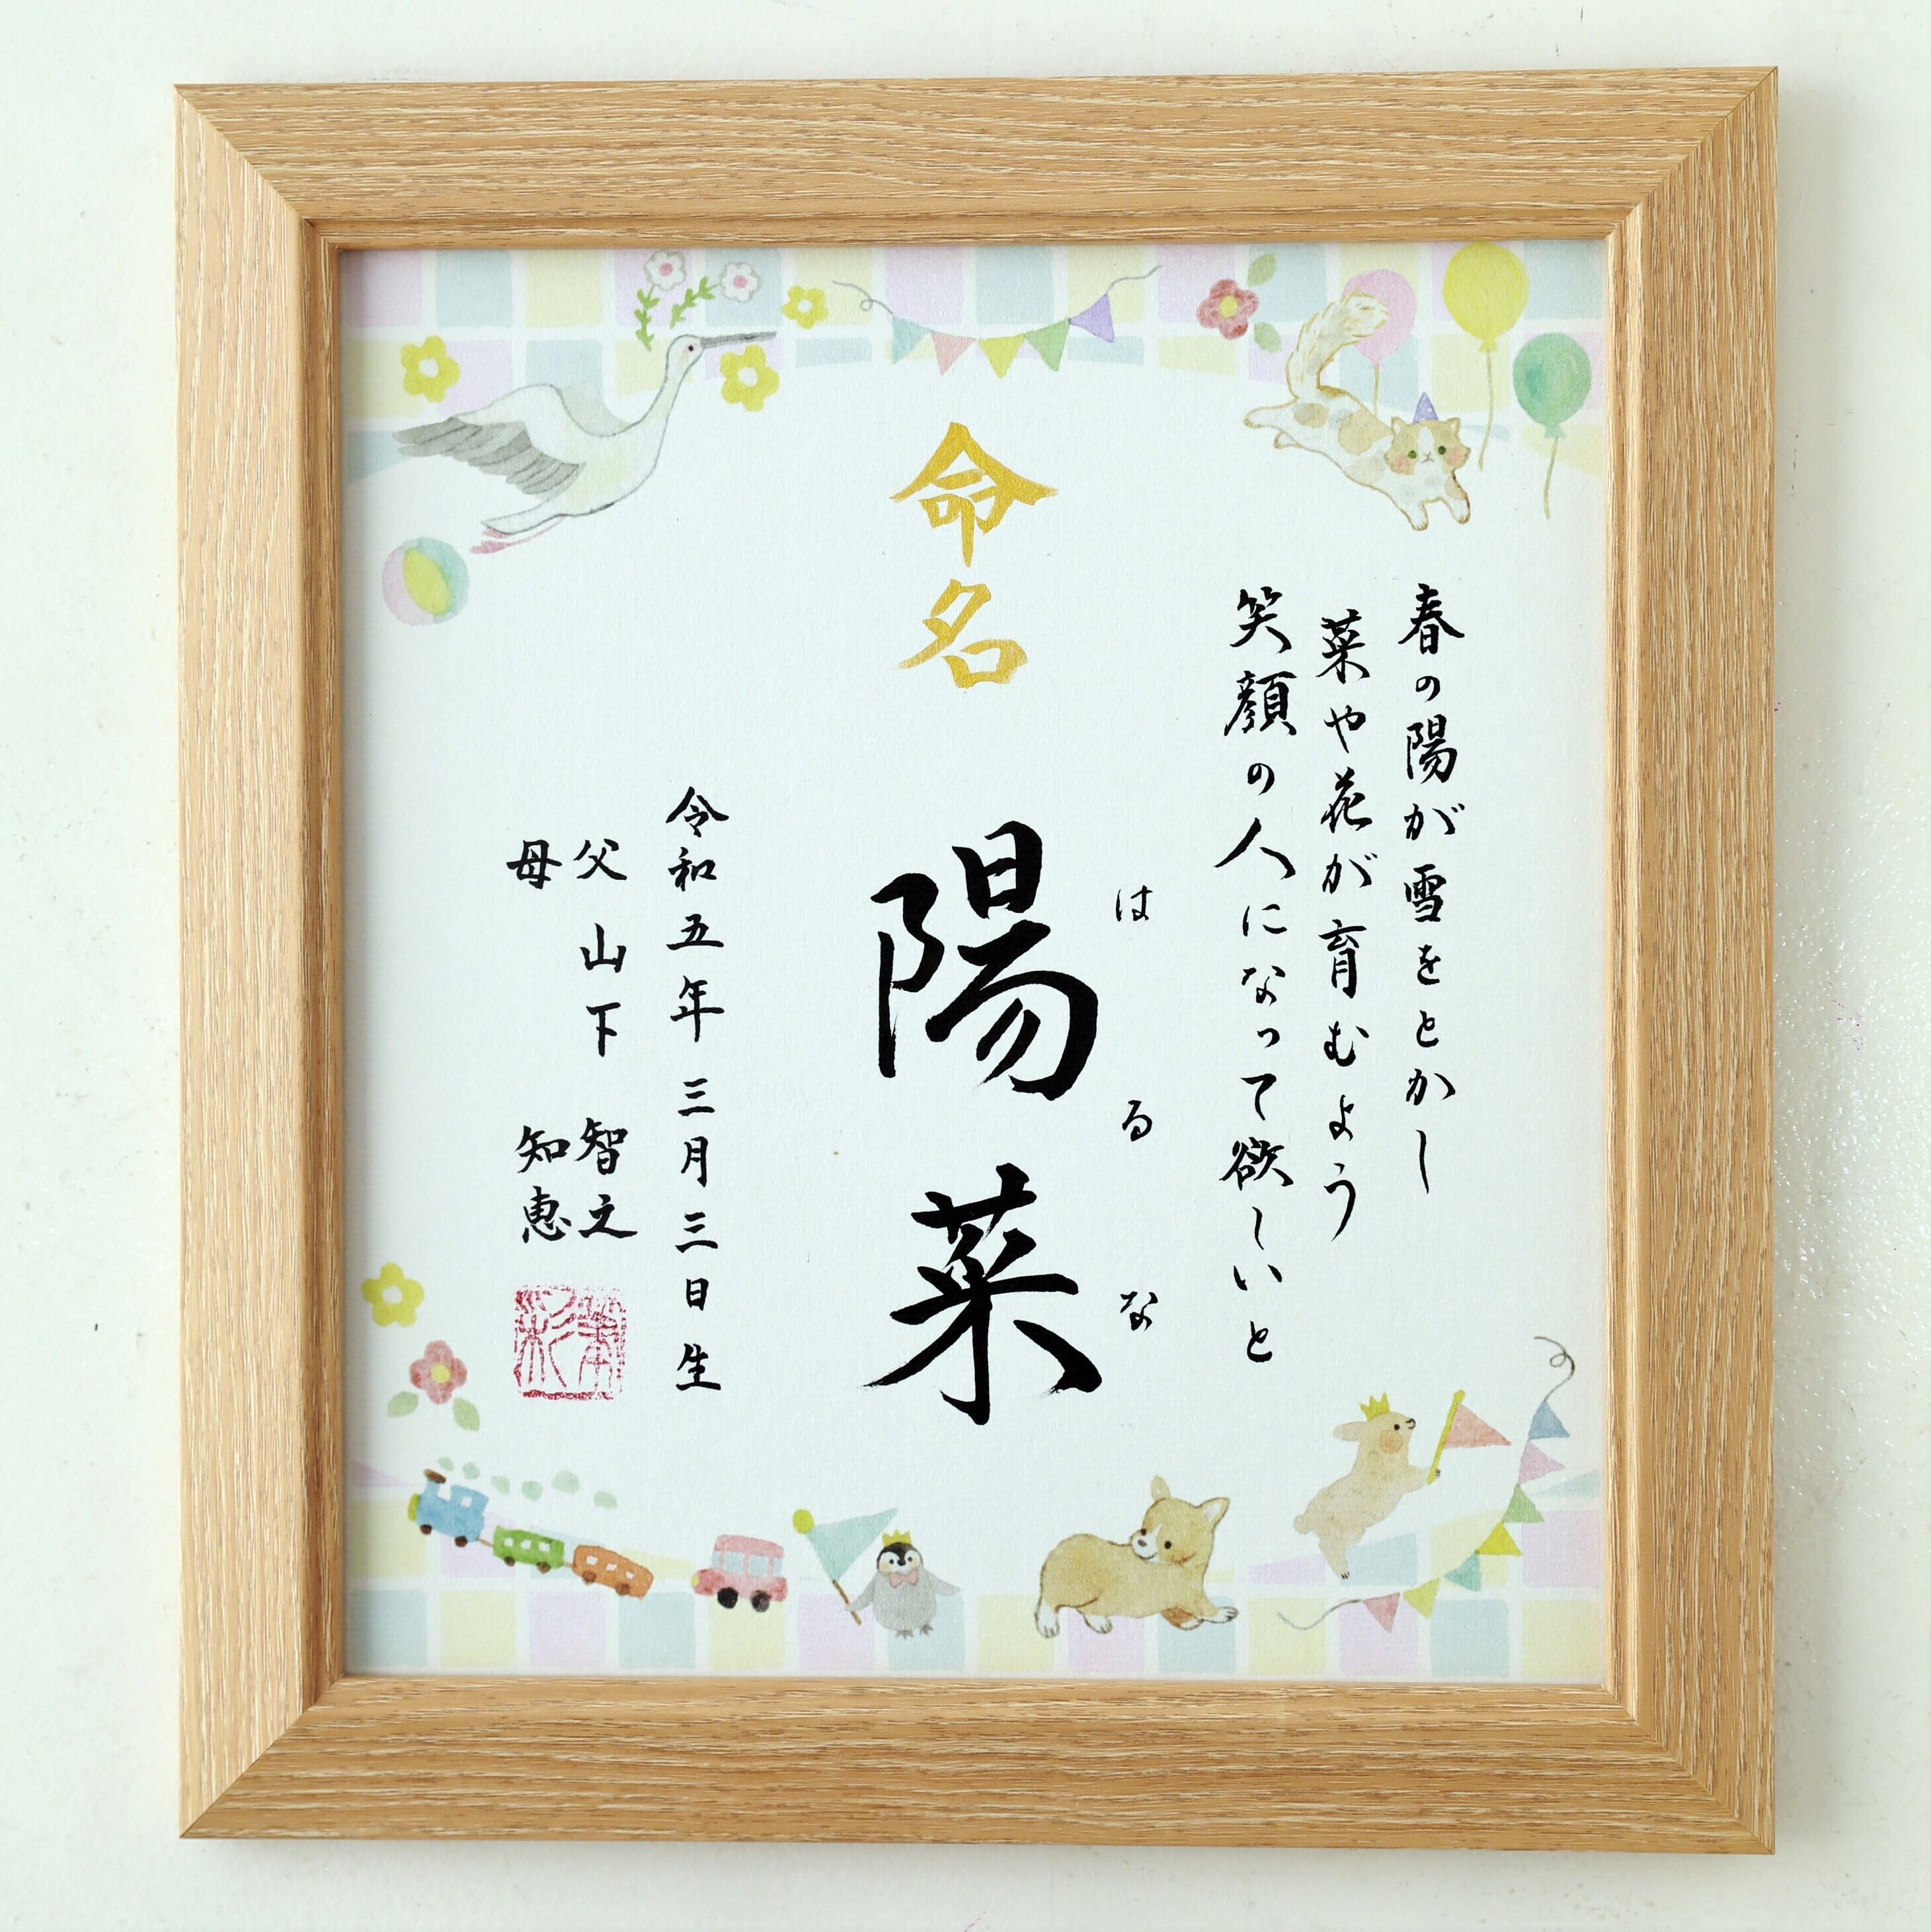 春の陽が雪をとかし
菜や花が育むよう
笑顔の人になって欲しいと
命名
はるな
陽菜
令和五年 三月三日生
父 山下 智之
母 知恵